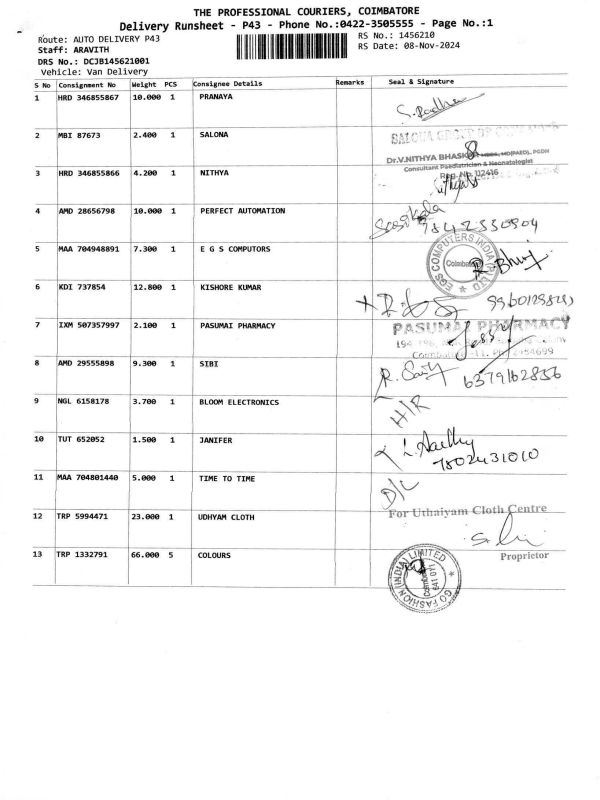 THE PROFESSIONAL COURIERS, COIMBATORE
Delivery Runsheet - P43 - Phone No.:0422-3505555 - Page No.:1
Route: AUTO DELIVERY P43
RS No.: 1456210
Staff: ARAVITH
RS Date: 08-Nov-2024
DRS No.: DCJB145621001
Vehicle: Van Delivery
S No Consignment No Weight PCS Consignee Details Remarks Seal & Signature
1 HRD 346855867 10.000 1 PRANAYA
2 MBI 87673 2.400 1 SALONA
Dr.V.NITHYA BHASKAR MBBS, MD(PAED)., PGDN
Consultant Paediatrician & Neonatologist
3 HRD 346855866 4.200 1 NITHYA Reg. No. 112416
4 AMD 28656798 10.000 1 PERFECT AUTOMATION
5 MAA 704948891 7.300 1 E G S COMPUTORS
EGS COMPUTERS INDIA LTD
Coimbatore
6 KDI 737854 12.800 1 KISHORE KUMAR
7 IXM 507357997 2.100 1 PASUMAI PHARMACY PASUMAI PHARMACY
8 AMD 29555898 9.300 1 SIBI
6379162856
9 NGL 6158178 3.700 1 BLOOM ELECTRONICS
H/R
10 TUT 652052 1.500 1 JANIFER
7802431010
11 MAA 704801440 5.000 1 TIME TO TIME
D/L
12 TRP 5994471 23.000 1 UDHYAM CLOTH For Uthaiyam Cloth Centre
Proprietor
13 TRP 1332791 66.000 5 COLOURS
GO FASHION (INDIA) LIMITED
Coimbatore
641 011